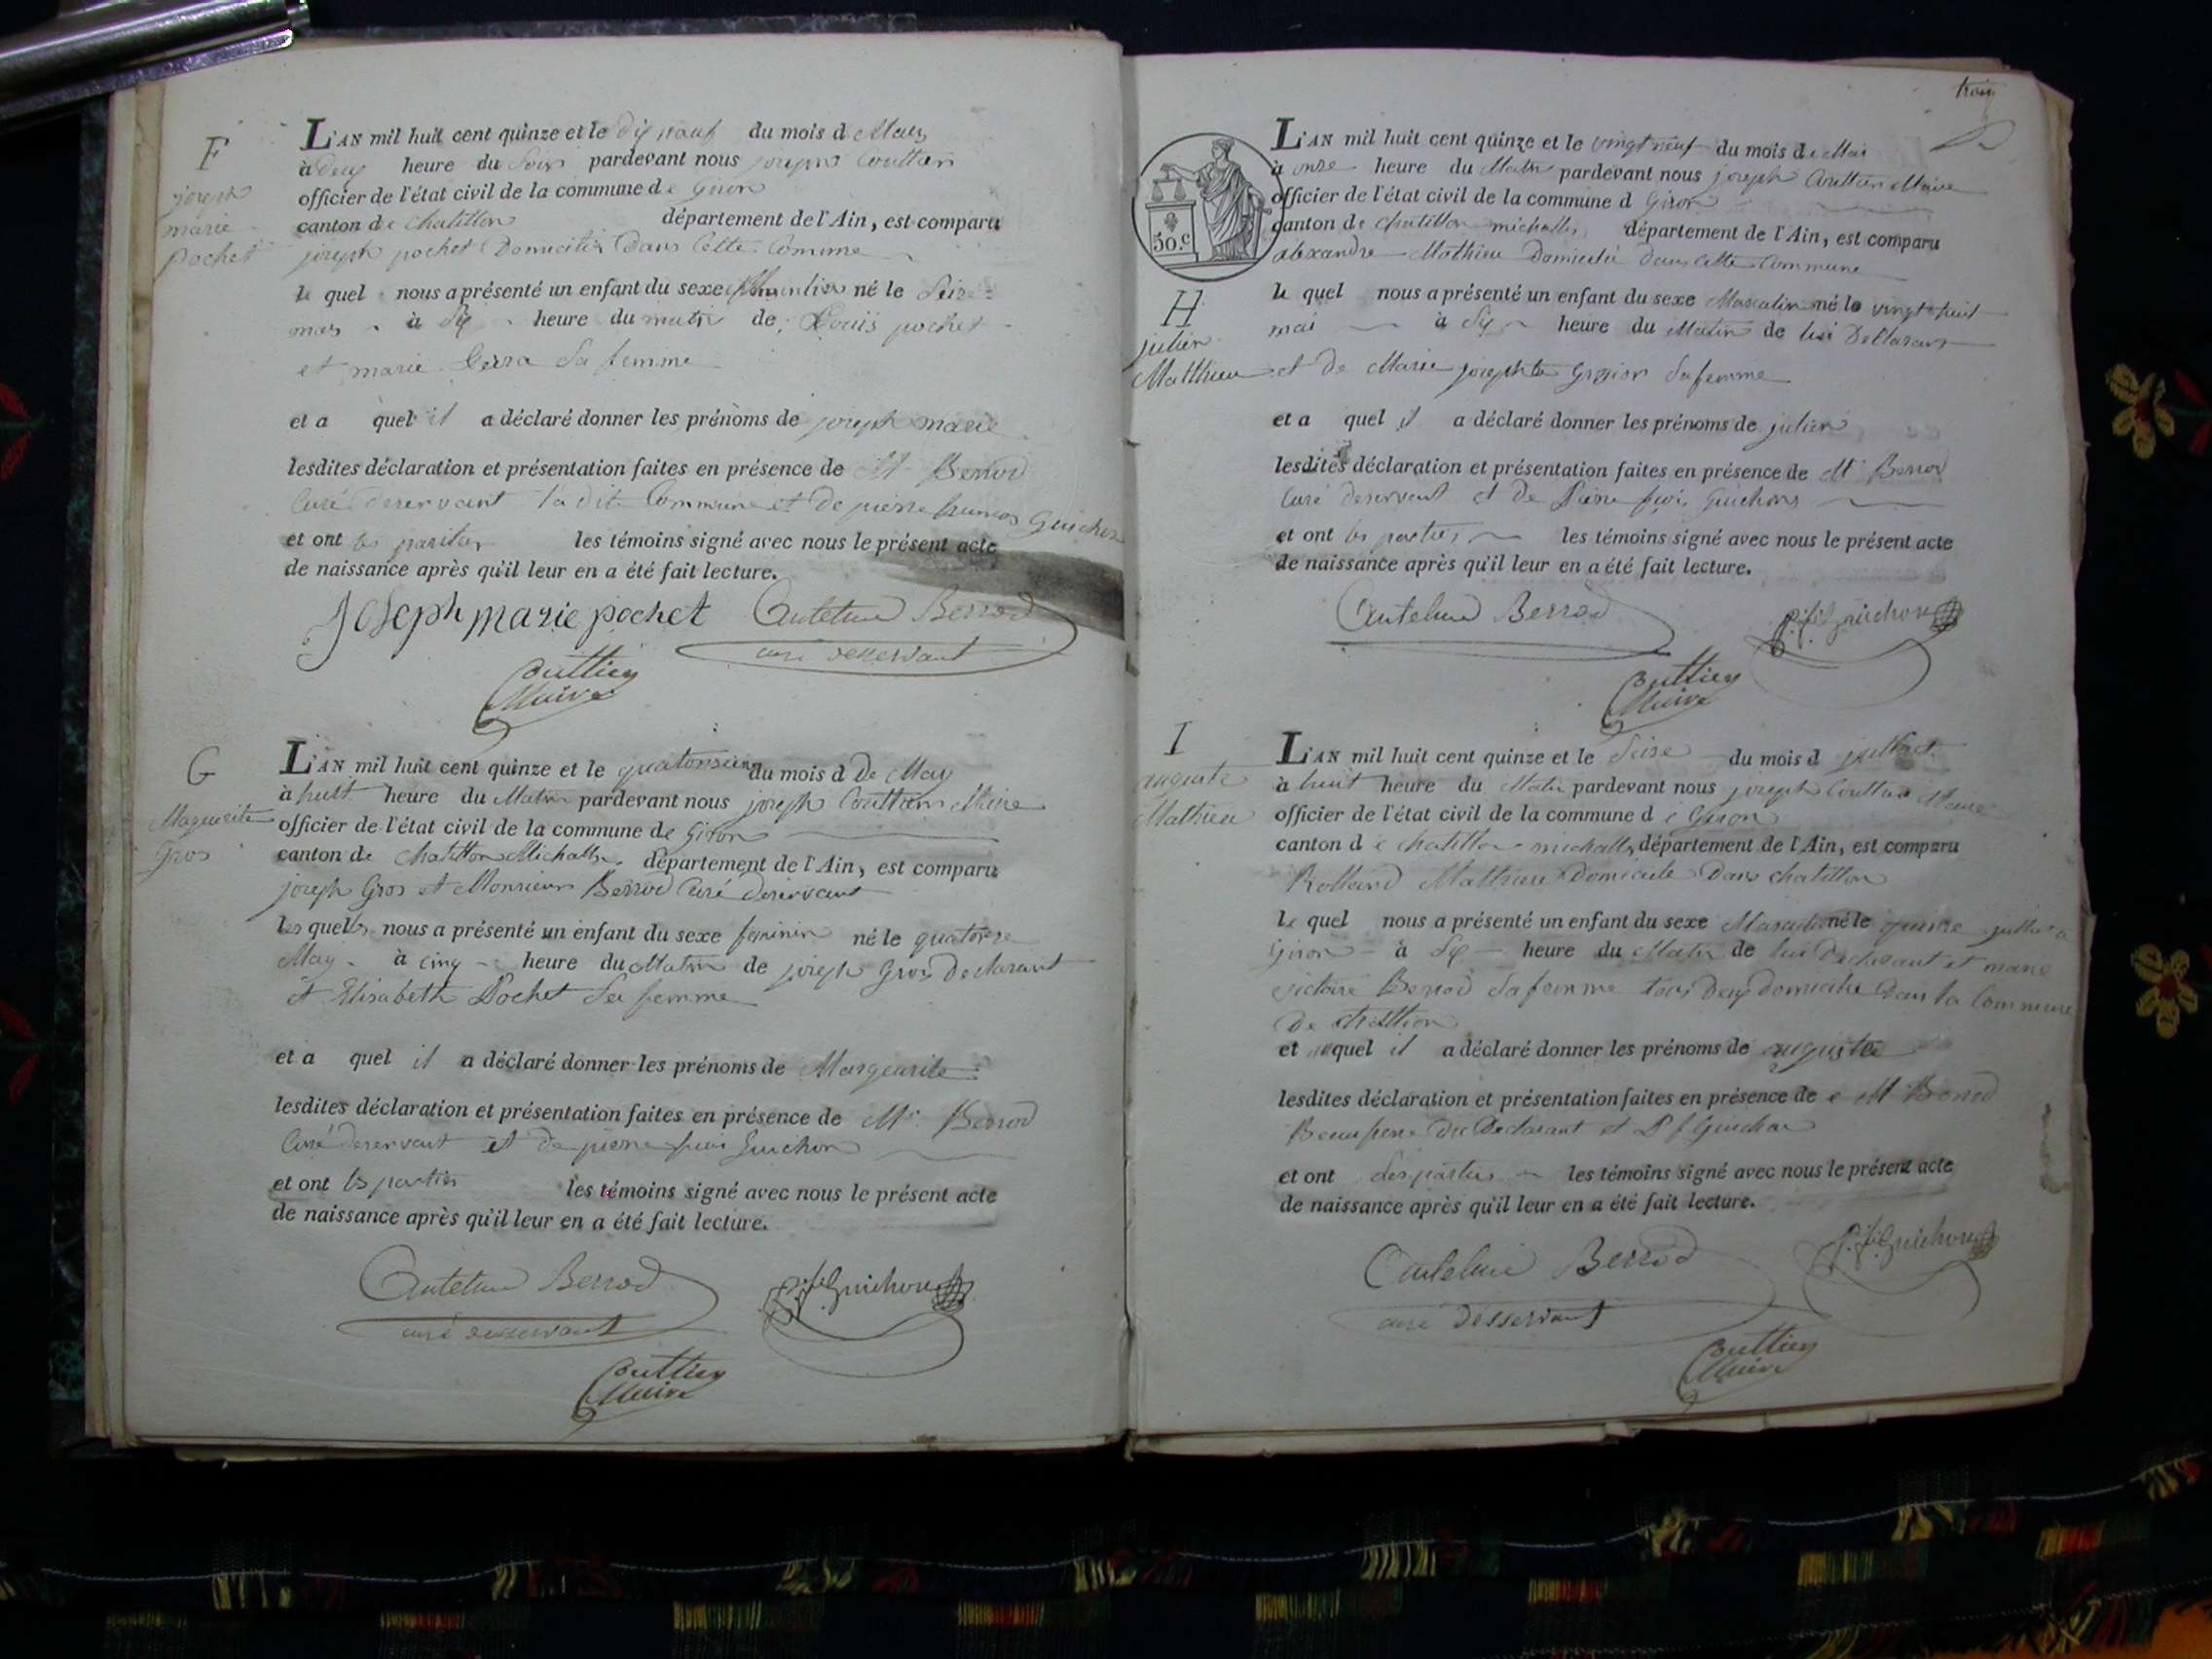 F
joseph
marie
pochet
L'AN mil huit cent quinze et le dix neuf du mois d Mars
à deux heure du Soir pardevant nous joseph Couttier
officier de l'état civil de la commune de Giron
canton de Chatillon département de l'Ain, est comparu
joseph pochet Domicilié dans Cette Comme
le quel nous a présenté un enfant du sexe né le Seize
mars à Six heure du matin de Louis pochet
et marie sa femme
et a quel il a déclaré donner les prénoms de joseph marie
lesdites déclaration et présentation faites en présence de Mr Berrod
Curé deservant la dite Commune et de pierre Guichon
et ont les les témoins signé avec nous le présent acte
de naissance après qu'il leur en a été fait lecture.
Joseph marie pochet Antelme Berrod
curé desservant
Couttier
Maire
G
Marguerite
Gros
L'AN mil huit cent quinze et le quatorzieme du mois d De May
à huit heure du Matin pardevant nous joseph Couttier Maire
officier de l'état civil de la commune de Giron
canton de Chatillon Michaille département de l'Ain, est comparu
joseph Gros et Monsieur Berrod Curé deservant
les quels nous a présenté un enfant du sexe feminin né le quatorze
May à cinq heure du Matin de joseph Gros Declarant
et Elisabeth Pochet Sa femme
et a quel il a déclaré donner les prénoms de Margeurite
lesdites déclaration et présentation faites en présence de Mr Berrod
Curé deservant et de pierre fçois Guichon
et ont les parties les témoins signé avec nous le présent acte
de naissance après qu'il leur en a été fait lecture.
Antelme Berrod P. f. Guichon
curé desservant
Couttier
Maire
trois
50.c
H
julien
Matthieu
L'AN mil huit cent quinze et le vingt neuf du mois de Mai
à onze heure du Matin pardevant nous joseph Couttier Maire
officier de l'état civil de la commune d Giron
canton de Chatillon michaille département de l'Ain, est comparu
alexandre Mathieu Domicilié dans cette Commune
le quel nous a présenté un enfant du sexe Masculin né le vingt huit
mai à Six heure du Matin de lui Déclarant
et de Marie josephte Sa femme
et a quel il a déclaré donner les prénoms de julien
lesdites déclaration et présentation faites en présence de Mr Berrod
Curé deservent et de Pierre fçois Guichon
et ont les parties les témoins signé avec nous le présent acte
de naissance après qu'il leur en a été fait lecture.
Antelme Berrod P. f. Guichon
Couttier
Maire
I
auguste
Mathieu
L'AN mil huit cent quinze et le Seise du mois d juillet
à huit heure du Matin pardevant nous joseph Couttier Maire
officier de l'état civil de la commune d e Giron
canton d e Chatillon michaille département de l'Ain, est comparu
Rolland Matthieu Domicilé Dans chatillon
le quel nous a présenté un enfant du sexe Masculin né le quinze juillet a
Giron à Six heure du Matin de lui Declarant et marie
victoire Berrod Sa femme tous Deux domicilié Dans la Commune
De Chatillon
et quel il a déclaré donner les prénoms de auguste
lesdites déclaration et présentation faites en présence de Mr Berrod
Beaufrere du Declarant et P f Guichon
et ont les parties les témoins signé avec nous le présent acte
de naissance après qu'il leur en a été fait lecture.
Antelme Berrod P. f. Guichon
curé desservant
Couttier
Maire